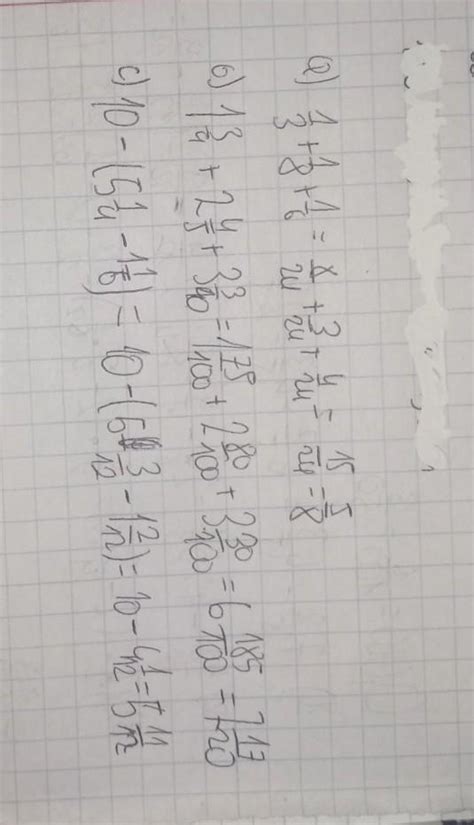 a) 1/3 + 1/8 + 1/6 = 8/24 + 3/24 + 4/24 = 15/24 = 5/8
b) 1 3/4 + 2 4/5 + 3 3/10 = 1 75/100 + 2 80/100 + 3 30/100 = 6 185/100 = 7 17/20
c) 10 - (5 1/4 - 1 1/6) = 10 - (5 3/12 - 1 2/12) = 10 - 4 1/12 = 5 11/12